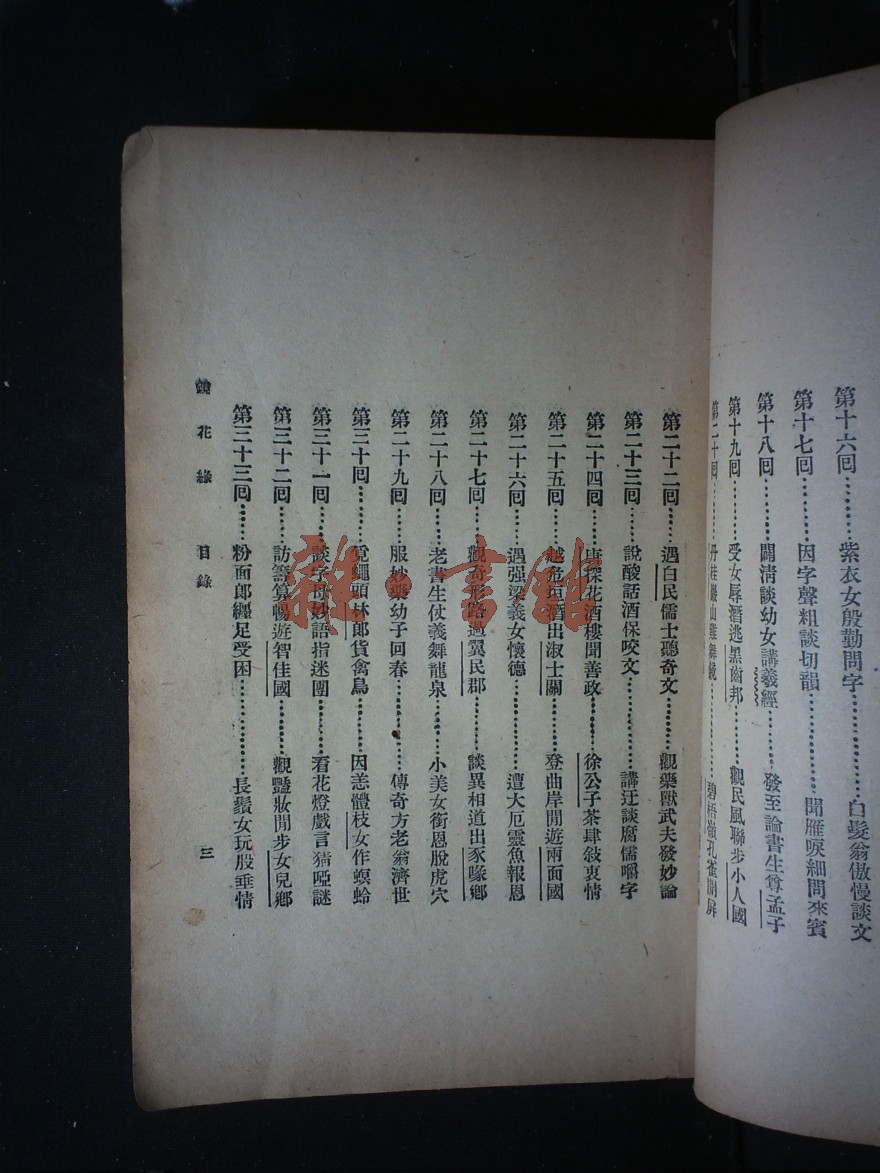 第十六回………紫衣女殷勤問字………白髮翁傲慢談文
第十七回………因字聲粗談切韻………聞雁唳細問來賓
第十八回………闢清談幼女講羲經………發至論書生尊孟子
第十九回………受女辱潛逃黑齒邦………觀民風聯步小人國
第二十回………丹桂巖山雞舞鏡………碧梧嶺孔雀開屏
第二十二回………遇白民儒士聽奇文………觀藥獸武夫發妙論
第二十三回………說酸話酒保咬文………講迂談腐儒嚼字
第二十四回………唐探花酒樓聞善政………徐公子茶肆敍衷情
第二十五回………越危垣潛出淑士關………登曲岸閒遊兩面國
第二十六回………遇强梁義女懷德………遭大厄靈魚報恩
第二十七回………觀奇形路過翼民郡………談異相道出豕喙鄉
第二十八回………老書生仗義舞龍泉………小美女銜恩脫虎穴
第二十九回………服妙藥幼子回春………傳奇方老翁濟世
第三十回………覓蠅頭林郎貨禽鳥………因恙體枝女作螟蛉
第三十一回………談字母妙語指迷團………看花燈戲言猜啞謎
第三十二回………訪籌算暢遊智佳國………觀豔妝閒步女兒鄉
第三十三回………粉面郎纏足受困………長鬚女玩股垂情
鏡花緣 目錄 三
雜·書館